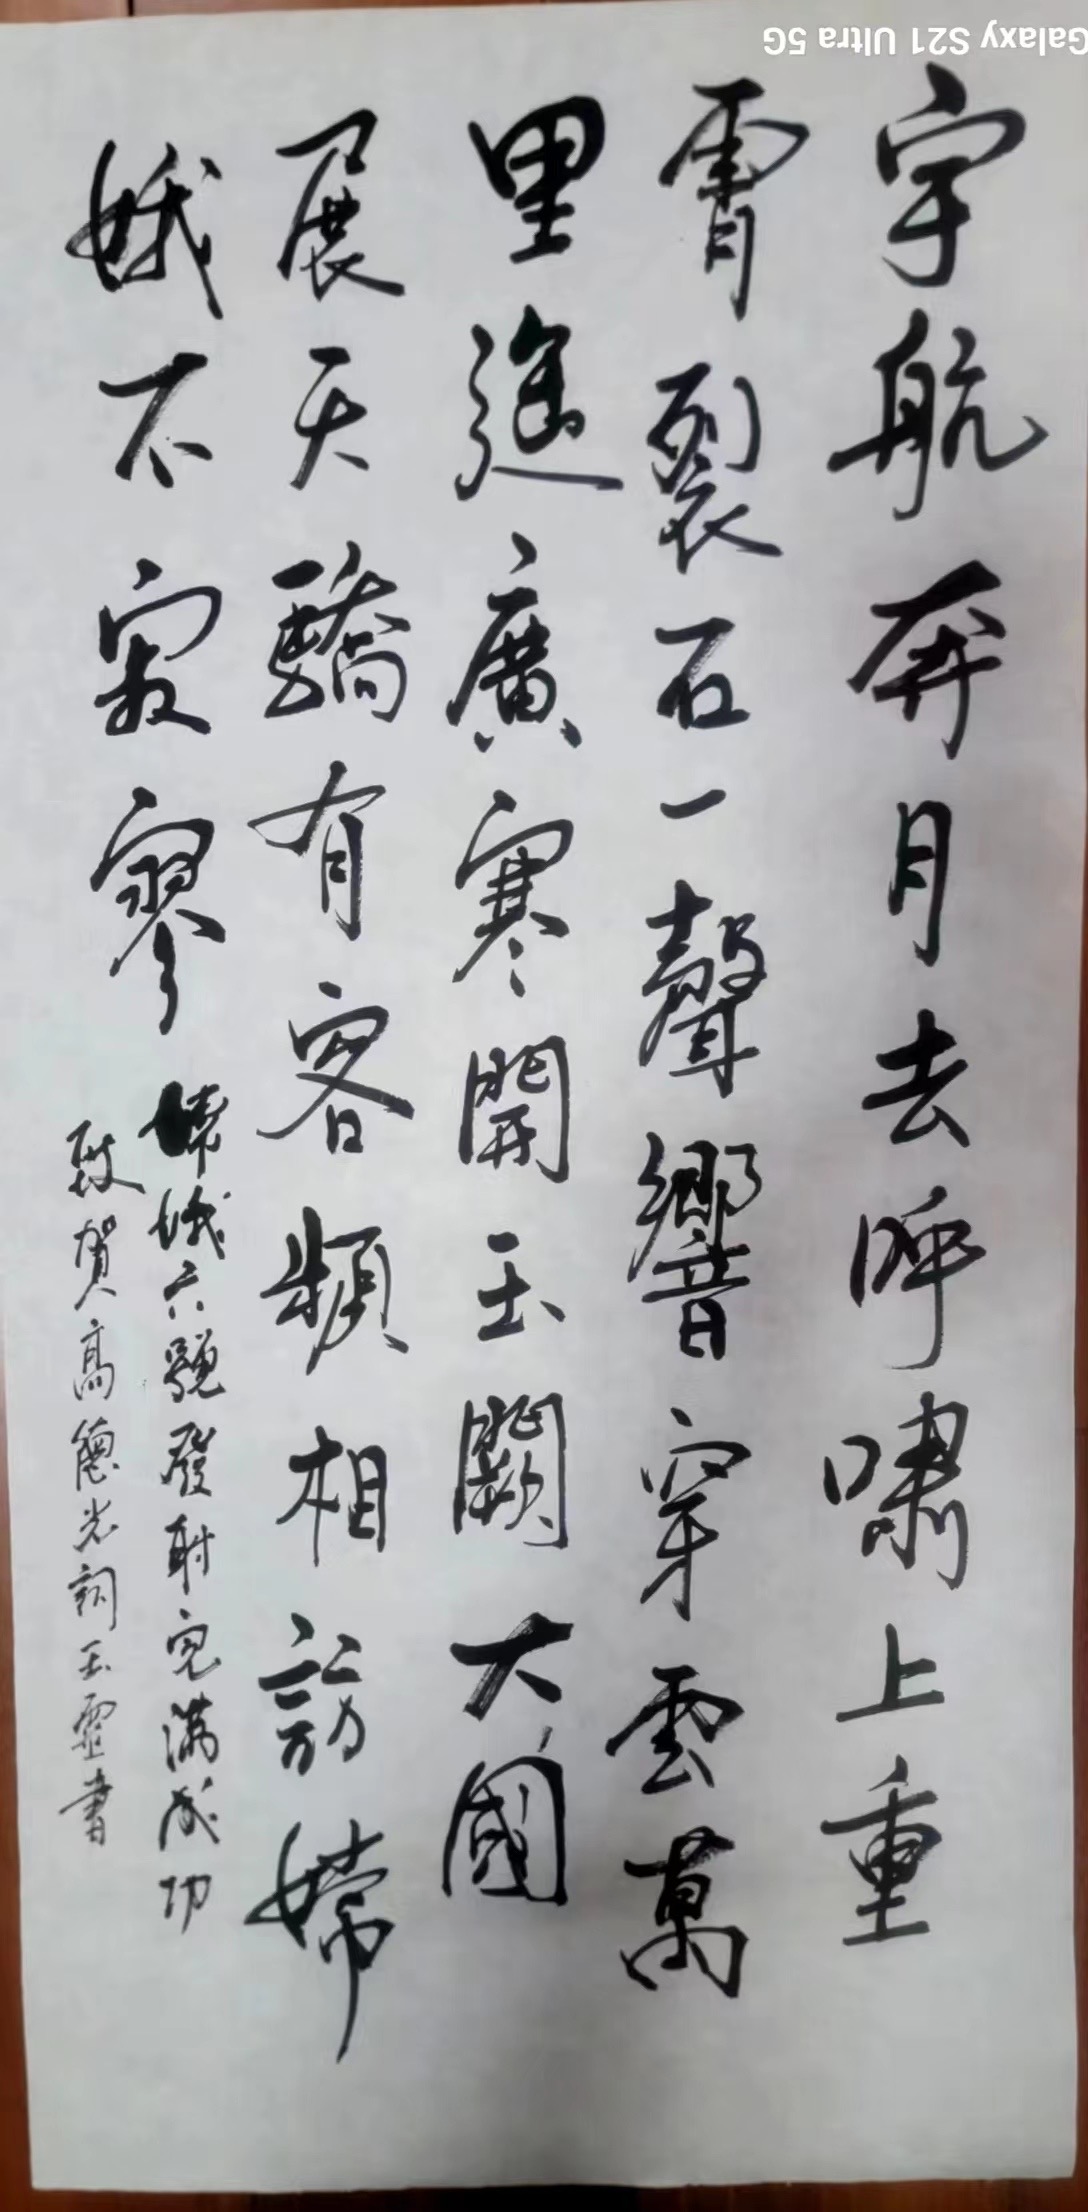 宇航奔月去呼嘯上重
霄裂石一聲響穿雲萬
里遙廣寒開玉闕大國
展天驕有客頻相訪嫦
娥不寂寥
嫦娥六號發射完滿成功
致賀高德光詞玉靈書
Galaxy S21 Ultra 5G